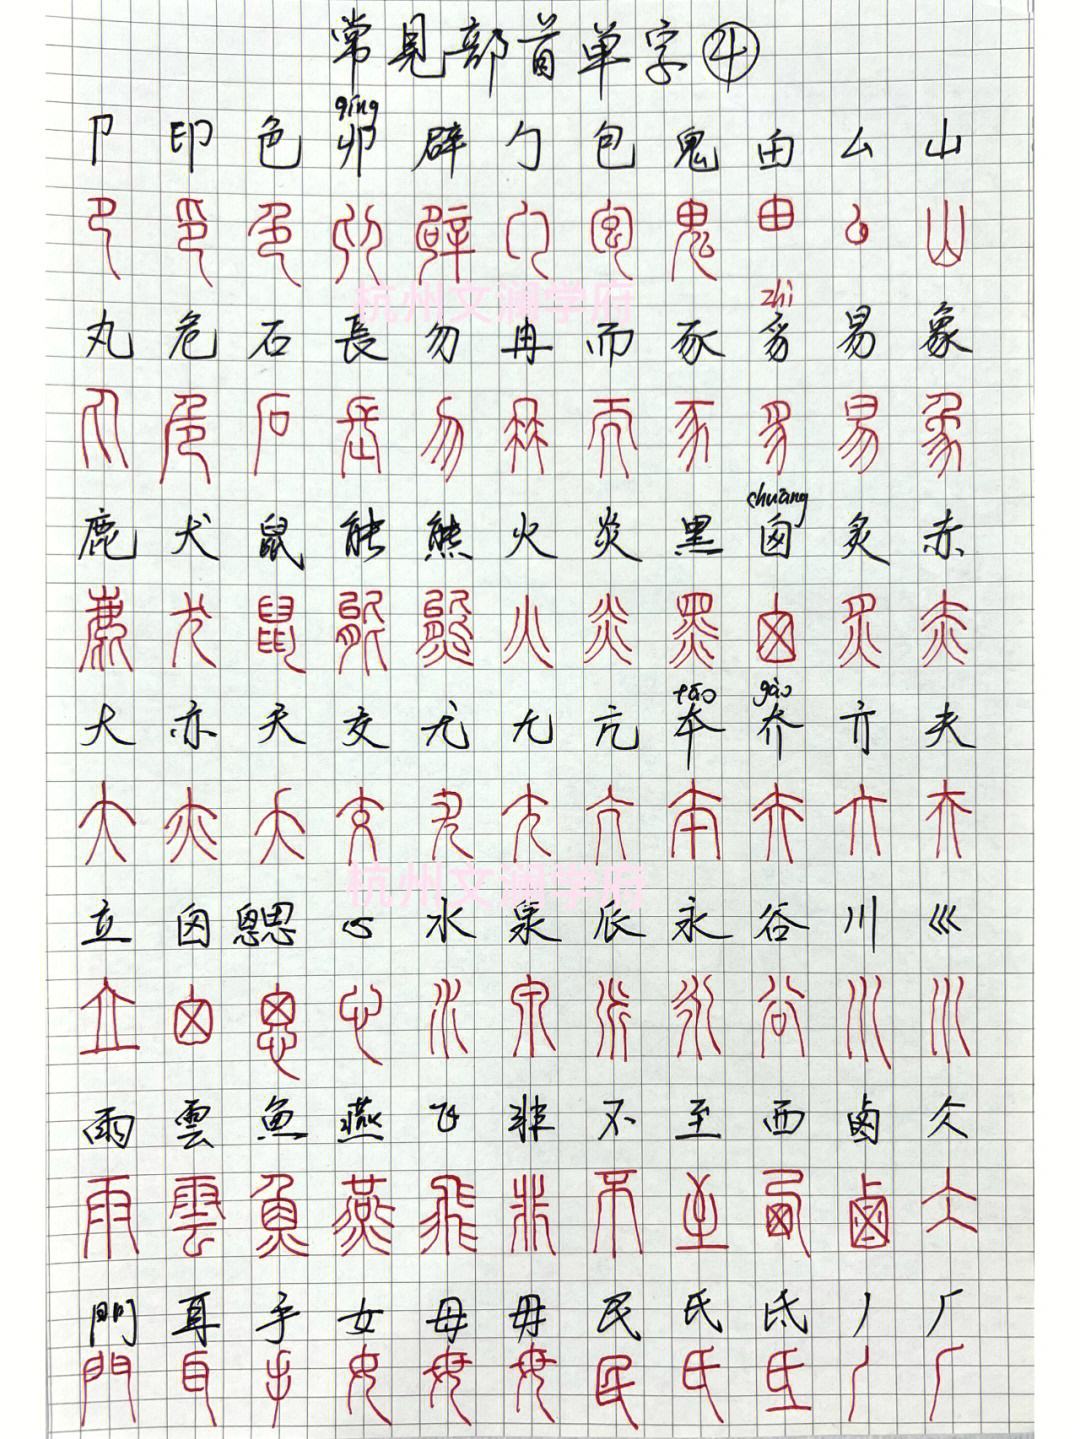 常見部首单字④
qīng
卩 印 色 卯 辟 勹 包 鬼 甶 厶 山
杭州文澜学府
zhì
丸 危 石 長 勿 冉 而 豕 豸 易 象
chuāng
鹿 犬 鼠 能 熊 火 炎 黑 囱 炙 赤
tāo gǎo
大 亦 夭 交 尤 尢 亢 夲 夰 亣 夫
杭州文澜学府
立 囟 恖思 心 水 泉 𠂢 永 谷 川 巛
雨 雲 魚 燕 飞 非 不 至 西 鹵 仌
門 耳 手 女 母 毋 民 氏 氐 丿 厂